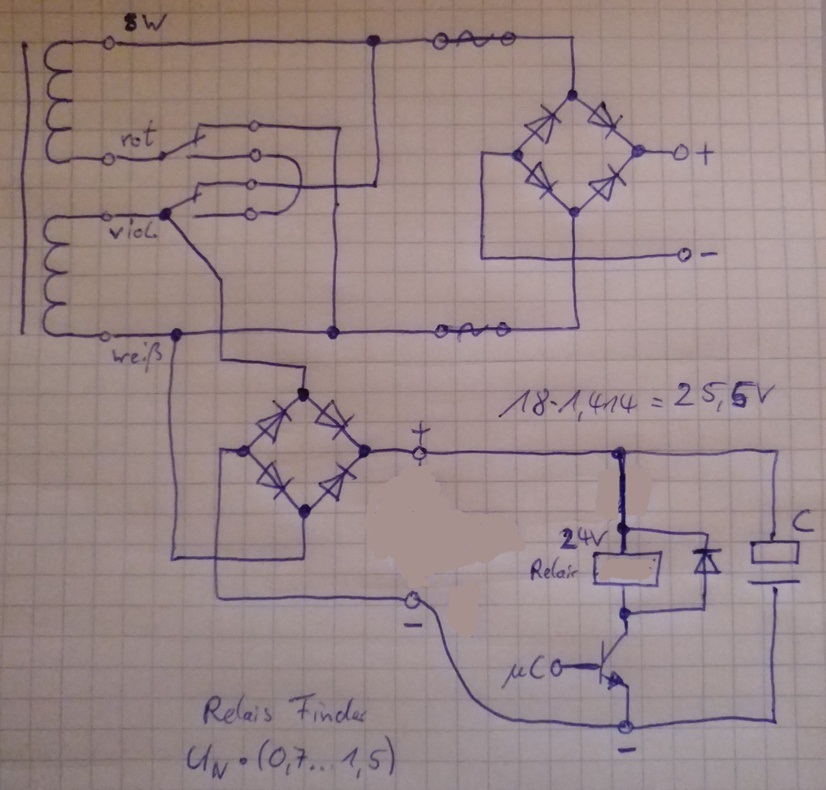 sw
rot
+
viol.
-
weiß
18·1,414 = 25,5V
+
C
24V
Relais
-
µC
Relais Finder
-
U_N · (0,7... 1,5)